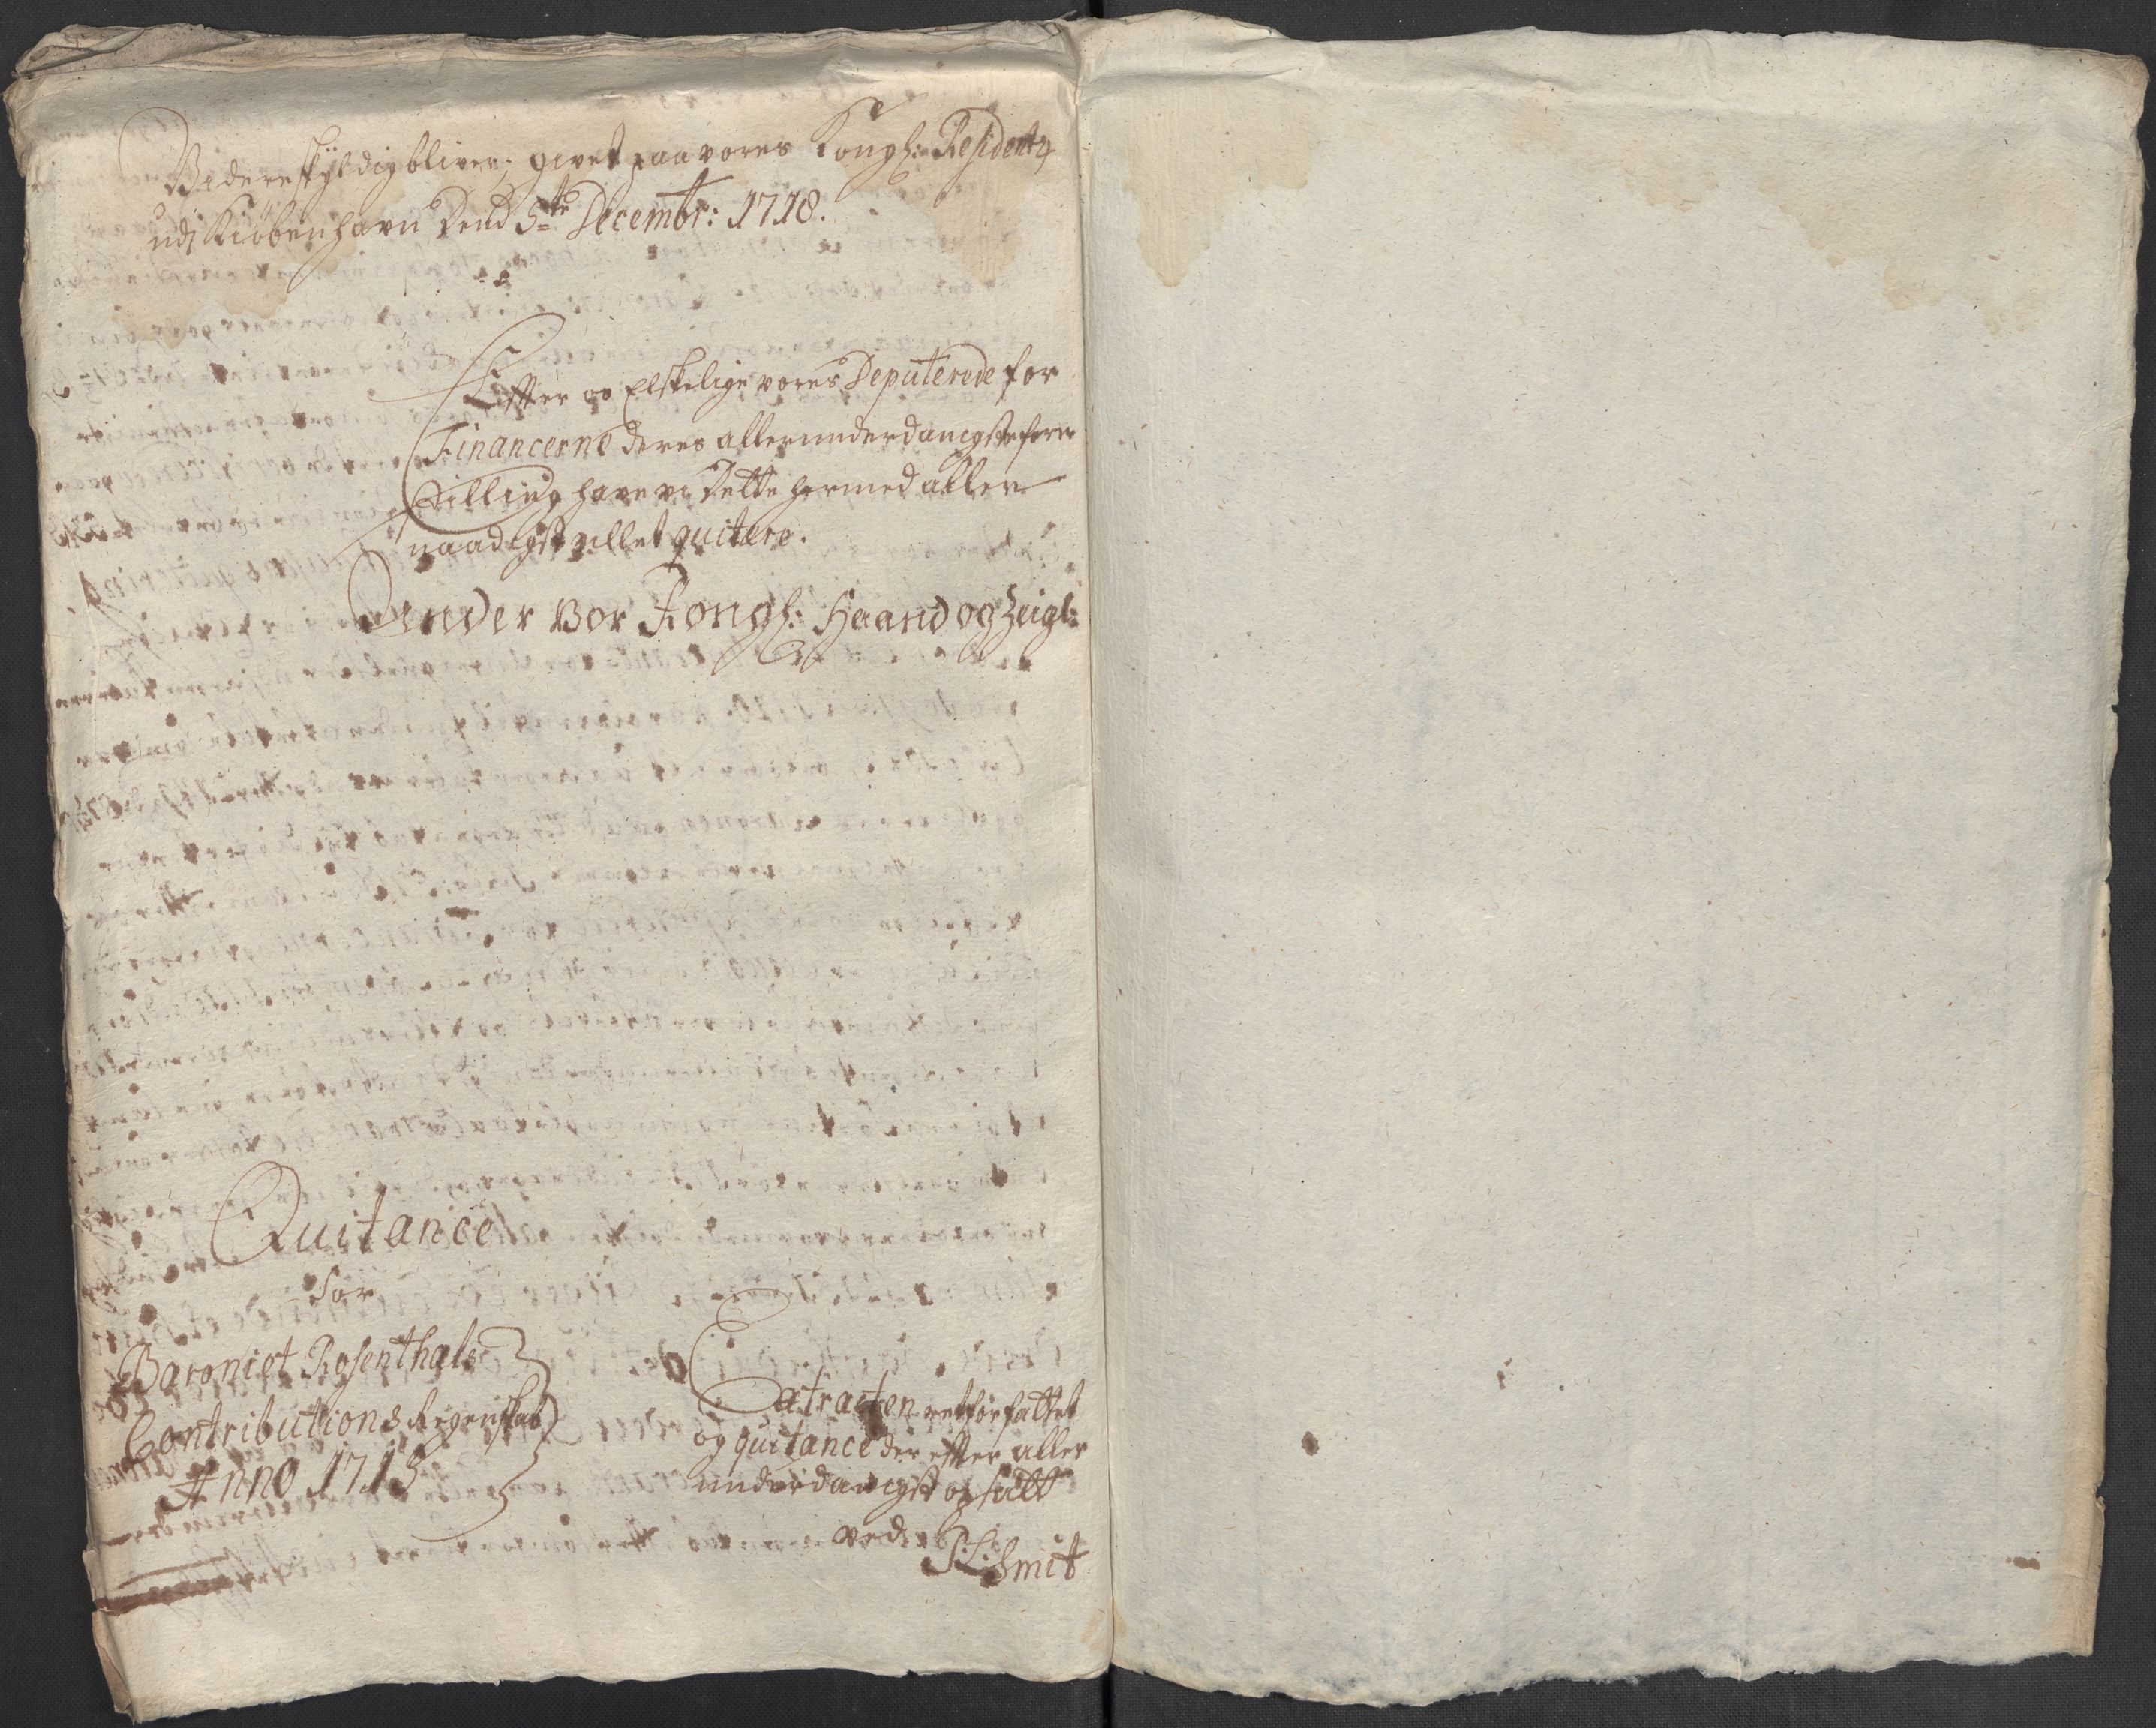 Videre skyldig bliver; givet paa vores Kongl: Residentz
udj Kiøbenhavn Dend 5te Decembr: 1718.
Efter os Elskelige vores Deputerede for
Financerne deres allerunderdanigste fore
stilling have vi Dette hermed aller
naadigst villet quitere.
Under Vor Kongl: Haand og Zeigl:
Quitance
for
Baroniet Rosenthals
Contributions Regenskab
Anno 1715
Extracten retforfattet
og quitance der efter aller
underdanigst opsatt
ved
Smit